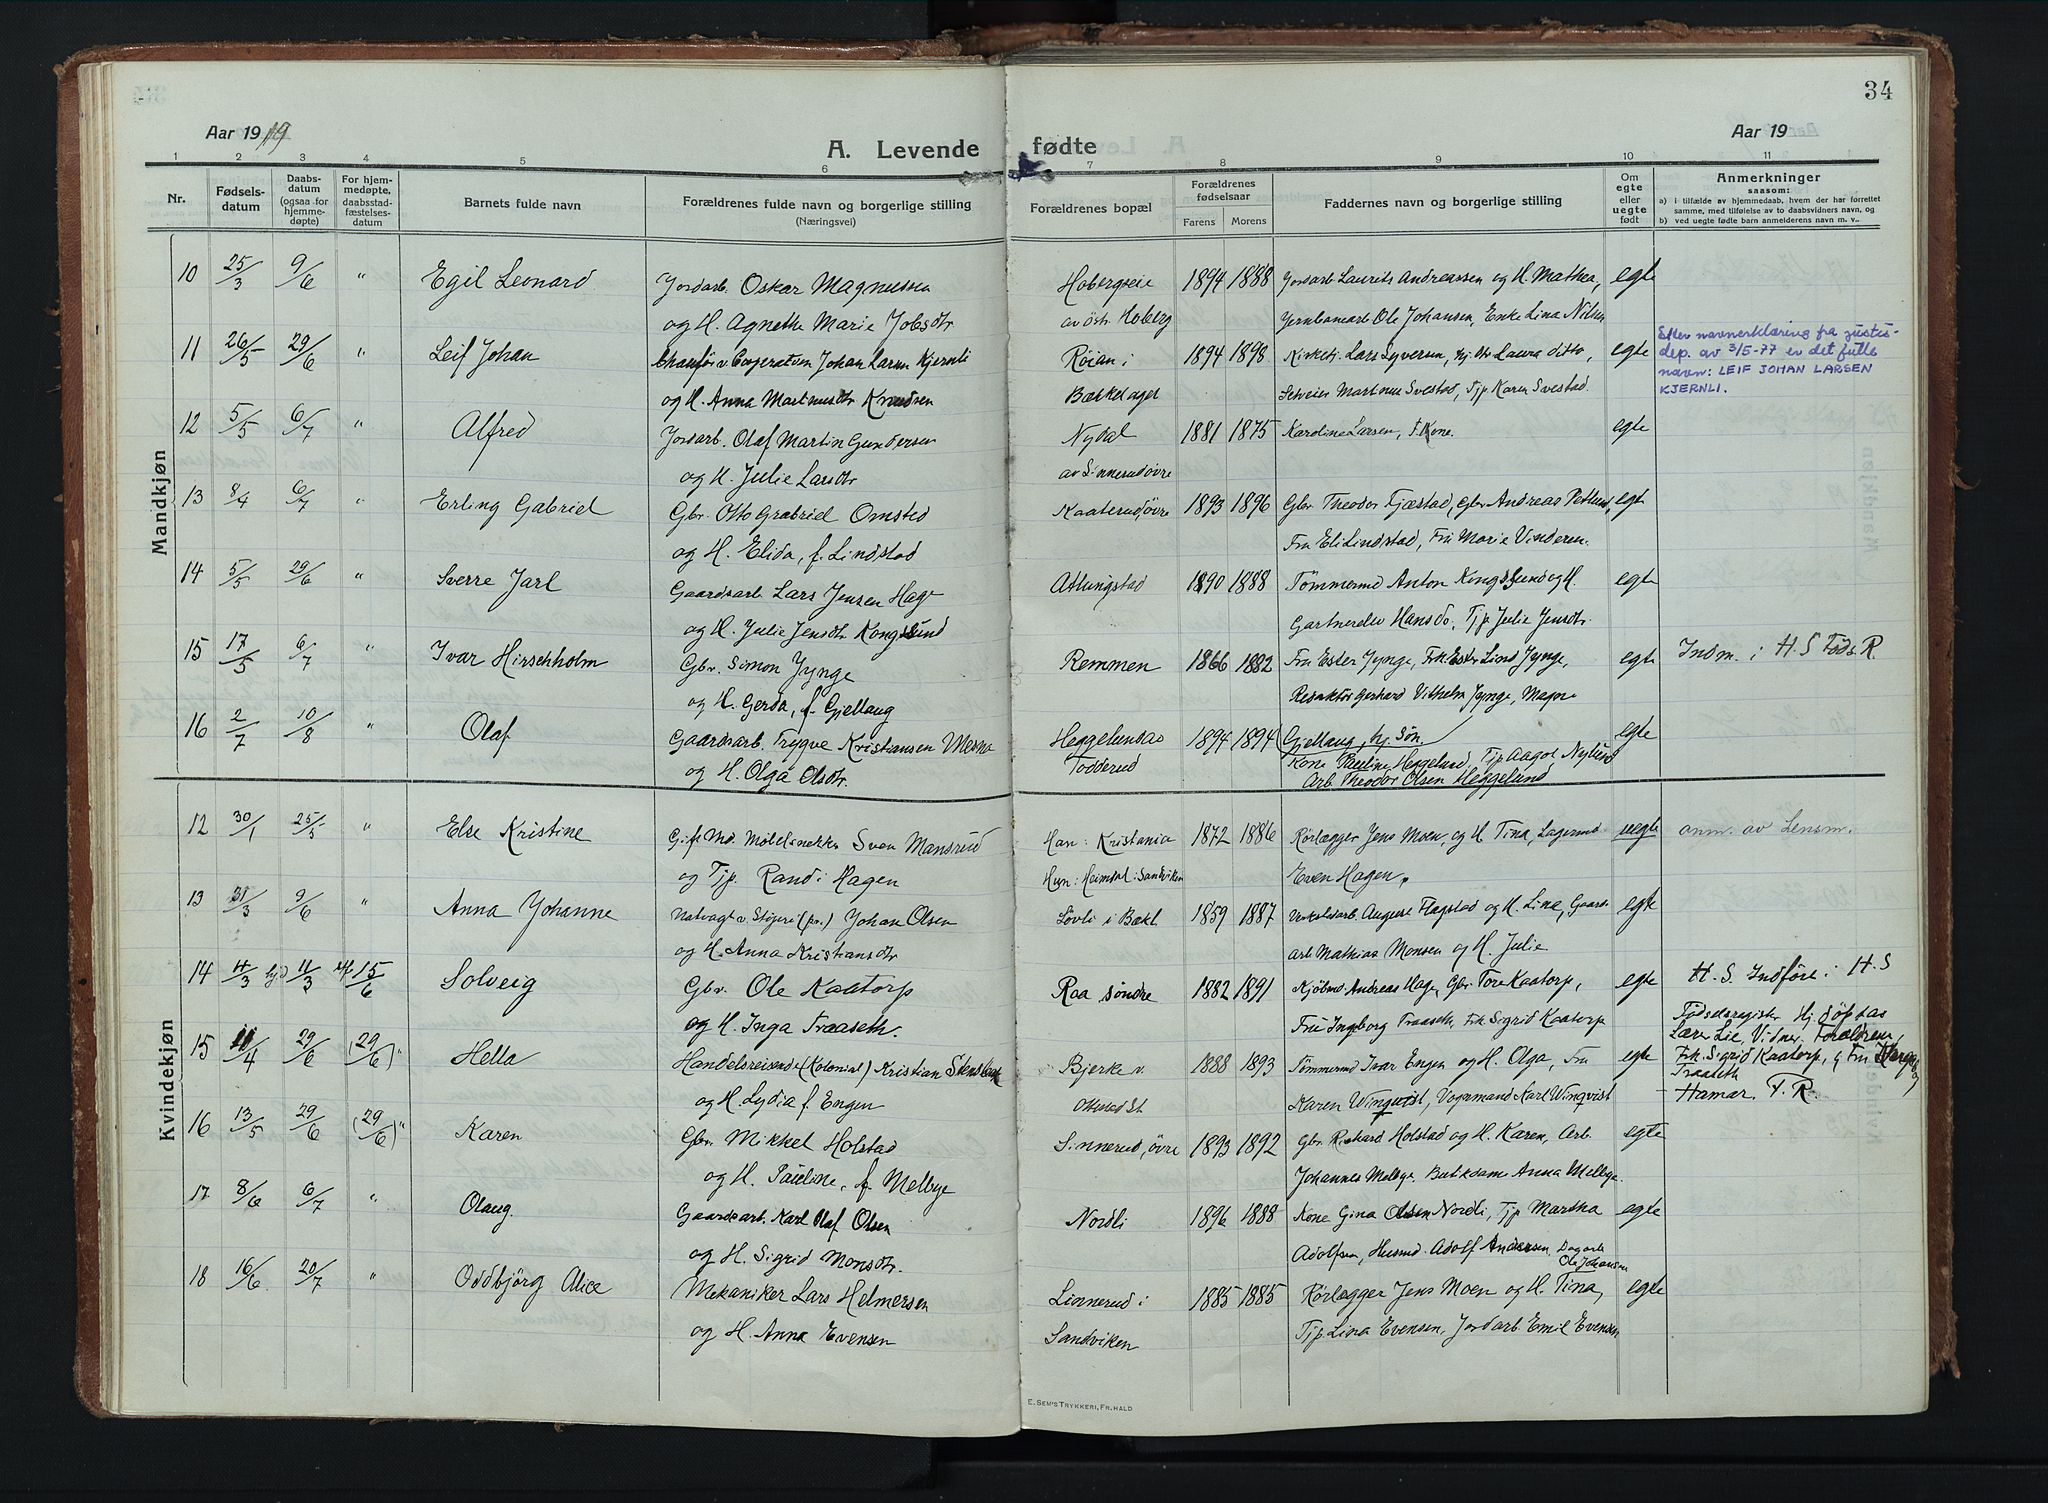 34
Aar 1919
A. Levende fødte
Aar 19
1 2 3 4 5 6 7 8 9 10 11
Nr.
Fødsels-
datum
Daabs-
datum
(ogsaa for
hjemme-
døpte)
For hjem-
medøpte,
daabsstad-
fæstelses-
datum
Barnets fulde navn
Forældrenes fulde navn og borgerlige stilling
(Næringsvei)
Forældrenes bopæl
Forældrenes
fødselsaar
Farens Morens
Faddernes navn og borgerlige stilling
Om
egte
eller
uegte
født
Anmerkninger
saasom:
a) i tilfælde av hjemmedaab, hvem der har forrettet
samme, med tilføielse av to daabsvidners navn, og
b) ved uegte fødte barn anmelderens navn m. v..
Mandkjøn
10 25/3 9/6 " Egil Leonard Jordarb. Oskar Magnussen Hobergseie 1894 1888 Jordarb Laurits Andreassen og H. Mathea, egte
og H. Agnethe Marie Jobsdtr av östr. Hoberg Jernbanearb Ole Johansen, Enke Lina Nilsen
11 26/5 29/6 " Leif Johan Johan Larsen Kjernli Röian i 1894 1898 Kirketj. Lars Syversen, Laura ditto, egte
og H. Anna Martinusdtr Knudsen Bækkelaget Martinus Svestad, Tjp Karen Svestad
Efter navneerklæring fra justis-
dep. av 3/5-77 er det fulle
navn: LEIF JOHAN LARSEN
KJERNLI.
12 5/5 6/7 " Alfred Jordarb. Olaf Martin Gundersen Nydal 1881 1875 Karoline Larsen, F. Kone. egte
og H. Julie Larsdtr av Sinnerud övre
13 8/4 6/7 " Erling Gabriel Gbr. Otto Grabriel Omsted Kaaterud, övre 1893 1896 Gbr Theodor Fjæstad, Gbr Andreas egte
og H. Elida, f. Lindstad Fru Eli Lindstad, Fru Marie Vinderen.
14 5/5 29/6 " Sverre Jarl Gaardsarb Lars Jensen Hage Atlungstad 1890 1888 Tömmermd Anton Kongslund og H. egte
og H. Julie Jensdtr Kongslund Gartnerelev Hans do, Tjp Julie Jensdtr.
15 17/5 6/7 " Ivar Hirschholm Gbr. Simon Jynge Remmen 1866 1882 Fru Ester Jynge, Frk. Ester Lind Jynge, egte Indm. i H. S Föds. R.
og H. Gerda, f. Gjellaug Redaktör Gerhard Vilhelm Jynge, Magne
16 2/7 10/8 " Olaf Gaardsarb. Trygve Kristiansen Mesna Heggelundao 1894 1894 Gjellaug, hj. Sön. egte
og H. Olga Olsdtr. Todderud Kone Pauline Heggelund, Tjp Aagot Nylund
Arb. Theodor Olsen Heggelund
Kvindekjøn
12 30/1 25/5 " Else Kristine G. ft. Md. Möbelsnekker Sven Mansrud Han: Kristania 1872 1886 Rörlægger Jens Moen, og H. Tina, Lagermd uegte anm. av Lensm.
og Tjp. Randi Hagen Hun: Heimdal i Sandviken Even Hagen.
13 31/3 9/6 " Anna Johanne Natvagt v. (pr.) Johan Olsen Lövli i Bækl. 1859 1887 Verkstedarb August Flagstad og H. Lina, Gaards egte
og H. Anna Kristiansdtr arb Mathias Monsen og H. Julie
14 11/3 hjd 11/3 15/6 Solveig Gbr. Ole Kaatorp Raa söndre 1882 1891 Kjöbmd Andreas Hage, Gbr. Tore Kaatorp, egte H. S. Indföre i H. S
og H. Inga Fraaseth. Fru Ingeborg Fraaseth, Frk Sigrid Kaatorp
Födselsregister Hj. döpt as
Lærer Lie, Vidner Foreldrene
Frk. Sigrid Kaatorp, & Fru
Fraaseth
15 10/4 29/6 (29/6)" Hella Handelsreisende (Kolonial) Kristian Stensbak Bjerke v. 1888 1893 Tömmermd Ivar Engen og H. Olga, Fru egte
og H. Lydia f. Engen Ottestad St. Karen Winqvist, Vognmand Karl Winqvist
Hamar. F. R.
16 13/5 29/6 (29/6)" Karen Gbr. Mikkel Holstad Sinnerud, övre 1893 1892 Gbr. Rickard Holstad og H. Karen, Arb. egte
og H. Pauline, f. Melbye Johannes Melbye. Butikdame Anna Melbye.
17 8/6 6/7 " Olaug. Gaardsarb. Karl Olaf Olsen Nordli 1896 1888 Kone Gina Olsen Nordli, Tjp Martha egte
og H. Sigrid Monsdtr. Adolfsen, Husmd. Adolf Andersen, Dagarb
Ole Johansen
18 16/6 20/7 " Oddbjörg Alice Mekaniker Lars Helmersen Linnerud i 1885 1885 Rörlægger Jens Moen og H. Tina, egte
og H. Anna Evensen Sandviken Tjp Lina Evensen, Jordarb. Emil Evensen
E. SEM'S TRYKKERI, FR. HALD